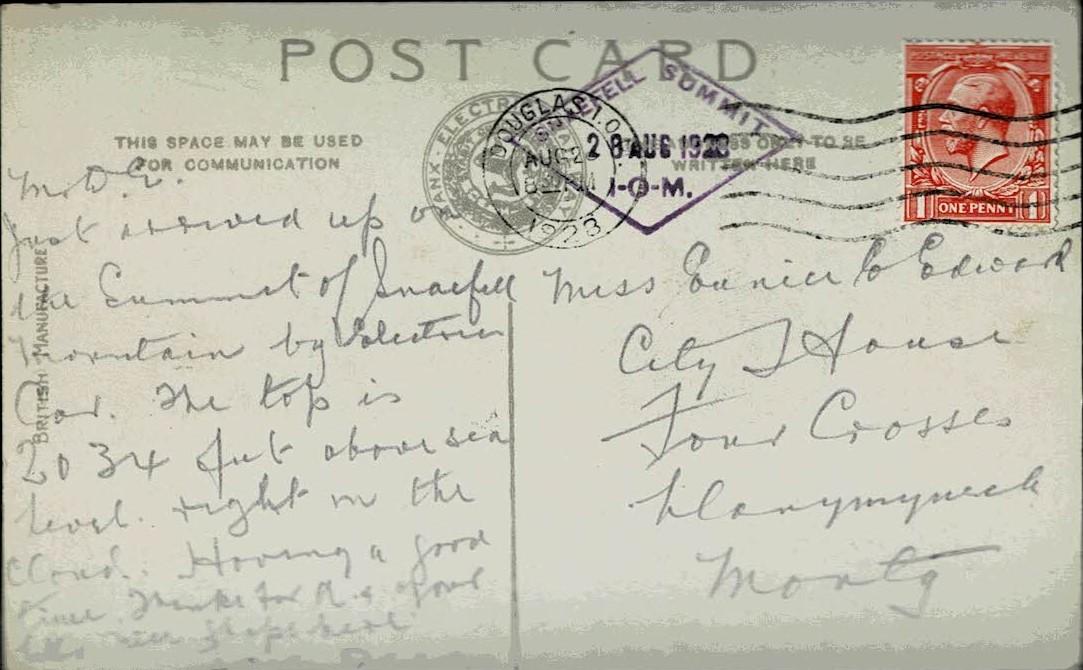 POST CARD
THIS SPACE MAY BE USED
FOR COMMUNICATION
WRITTEN HERE
MANX ELECTRIC
DOUGLAS I.O.
AUG 2
1928
SNAEFELL SUMMIT
28 AUG 1928
I-O-M.
1 ONE PENNY 1
BRITISH MANUFACTURE
My D. E.
Just arrived up on
the Summit of Snaefell
Mountain by Electric
Car. The top is
2034 feet above sea
level. right in the
Cloud. Having a good
time. Thanks for
Miss Eunice E Edward
City House
Four Crosses
Llanymynech
Monty